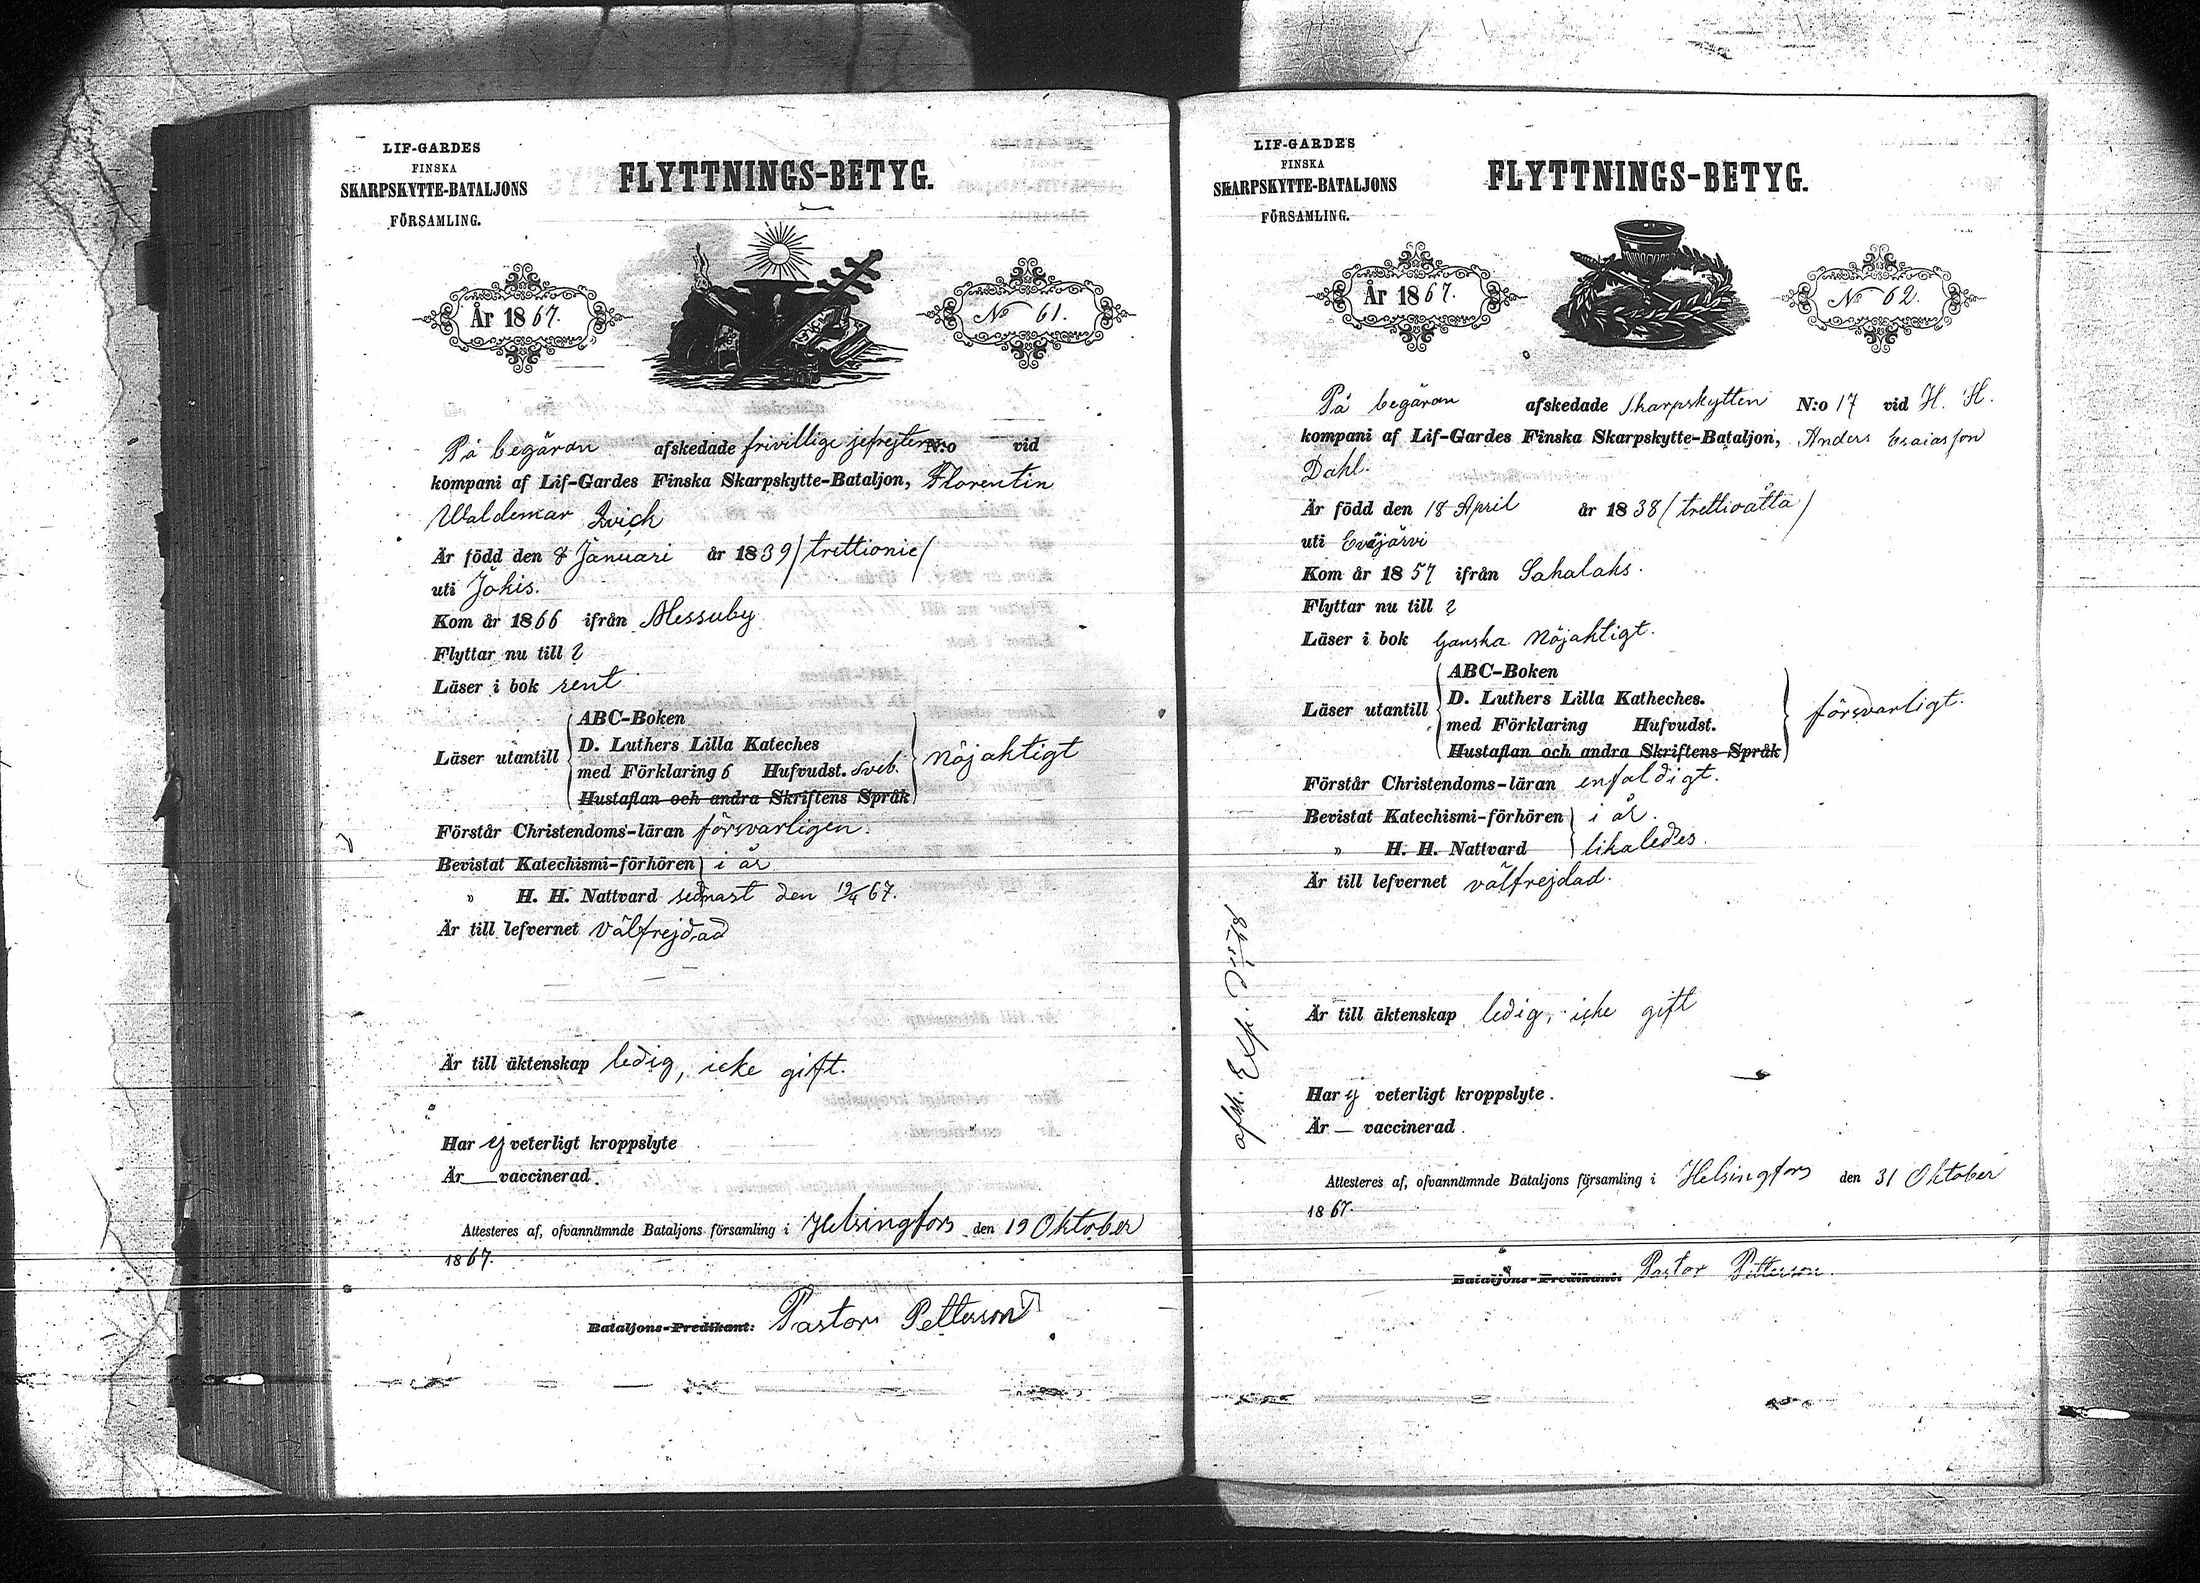 LIF-GARDES
FINSKA
SKARPSKYTTE-BATALJONS
FÖRSAMLING.
FLYTTNINGS-BETYG.
År 1867.
No 61.
På begäran afskedade frivillige jefrejtern N:o vid
kompani af Lif-Gardes Finska Skarpskytte-Bataljon, Florentin
Waldemar Qvick
Är född den 8 Januari år 1839 /trettionie/
uti Jokis.
Kom år 1866 ifrån Messuby
Flyttar nu till ?
Läser i bok rent
Läser utantill
ABC-Boken
D. Luthers Lilla Kateches
med Förklaring 6 Hufvudst. Sveb.
Hustaflan och andra Skriftens Språk
Nöjaktigt
Förstår Christendoms-läran försvarligen.
Bevistat Katechismi-förhören i år
" H. H. Nattvard sednast den 19/4 67.
Är till lefvernet välfrejdad
Är till äktenskap ledig, icke gift.
Har ej veterligt kroppslyte
Är — vaccinerad.
Attesteres af, ofvannämnde Bataljons församling i Helsingfors den 19 Oktober
1867.
Bataljons-Predikant: Pastor Petterson
LIF-GARDES
FINSKA
SKARPSKYTTE-BATALJONS
FÖRSAMLING.
FLYTTNINGS-BETYG.
År 1867.
No 62.
På begäran afskedade Skarpskytten N:o 17 vid H. H.
kompani af Lif-Gardes Finska Skarpskytte-Bataljon, Anders Esaiasson
Dahl.
Är född den 18 April år 1838 /trettioåtta/
uti Evijärvi
Kom år 1857 ifrån Sahalaks.
Flyttar nu till ?
Läser i bok Ganska Nöjaktigt.
Läser utantill
ABC-Boken
D. Luthers Lilla Katheches.
med Förklaring Hufvudst.
Hustaflan och andra Skriftens Språk
försvarligt.
Förstår Christendoms-läran enfaldigt.
Bevistat Katechismi-förhören i år.
" H. H. Nattvard likaledes.
Är till lefvernet välfrejdad.
Är till äktenskap ledig, icke gift
Har ej veterligt kroppslyte.
Är — vaccinerad.
Attesteres af, ofvannämnde Bataljons församling i Helsingfors den 31 Oktober
1867.
Bataljons-Predikant: Pastor Petterson.